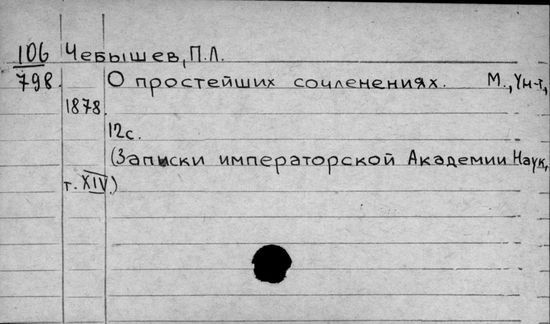 106 Чебышев, П.Л.
798. О простейших сочленениях. М., Ун-т,
1878.
12с.
(Записки императорской Академии Наук,
т. XIV)